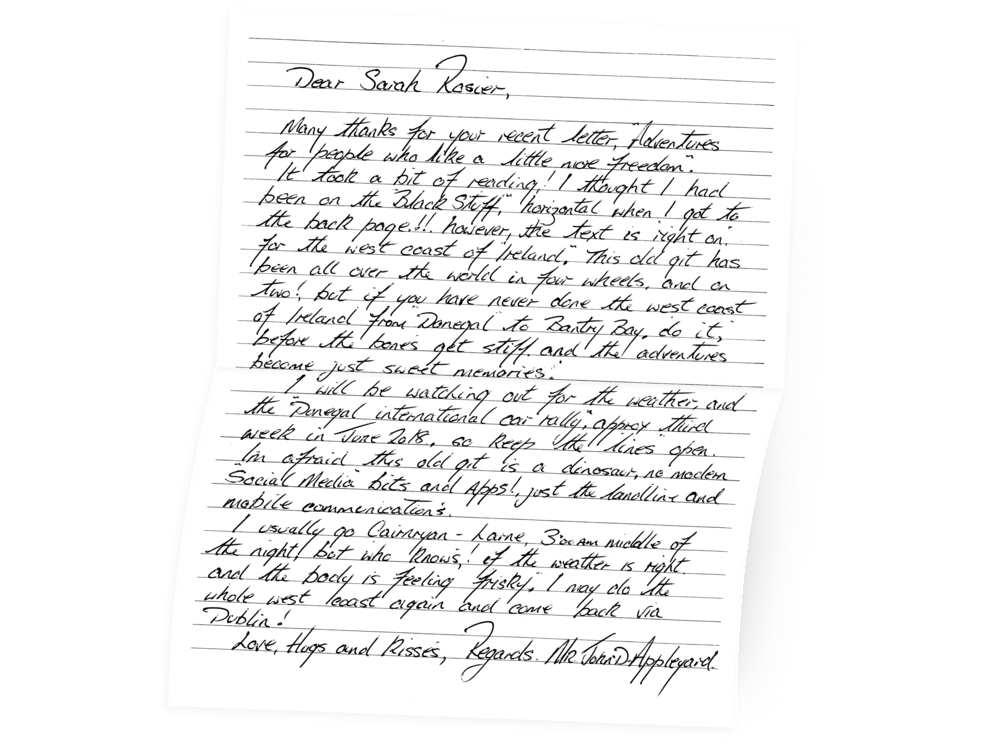 Dear Sarah Rosier,
Many thanks for your recent letter, "Adventures
for people who like a little more freedom".
It took a bit of reading! I thought I had
been on the "Black Stuff", horizontal when I got to
the back page!!. however, the text is right on.
for the west coast of "Ireland," This old git has
been all over the world in four wheels, and on
two!, but if you have never done the west coast
of Ireland from "Donegal" to Bantry Bay, do it,
before the bones get stiff and the adventures
become just sweet memories.
I will be watching out for the weather, and
the "Donegal international car rally", approx third
week in June 2018, so keep "the lines" open.
I'm afraid this old git is a dinosaur, no modern
"Social Media" bits and Apps!, just the landline and
mobile communications.
I usually go Cairnryan - Larne, 3:00 AM middle of
the night, but who knows,! if the weather is right.
and the body is feeling frisky, I may do the
whole west coast again and come back via
Dublin!
Love, Hugs and Kisses, Regards. Mr John D Appleyard.